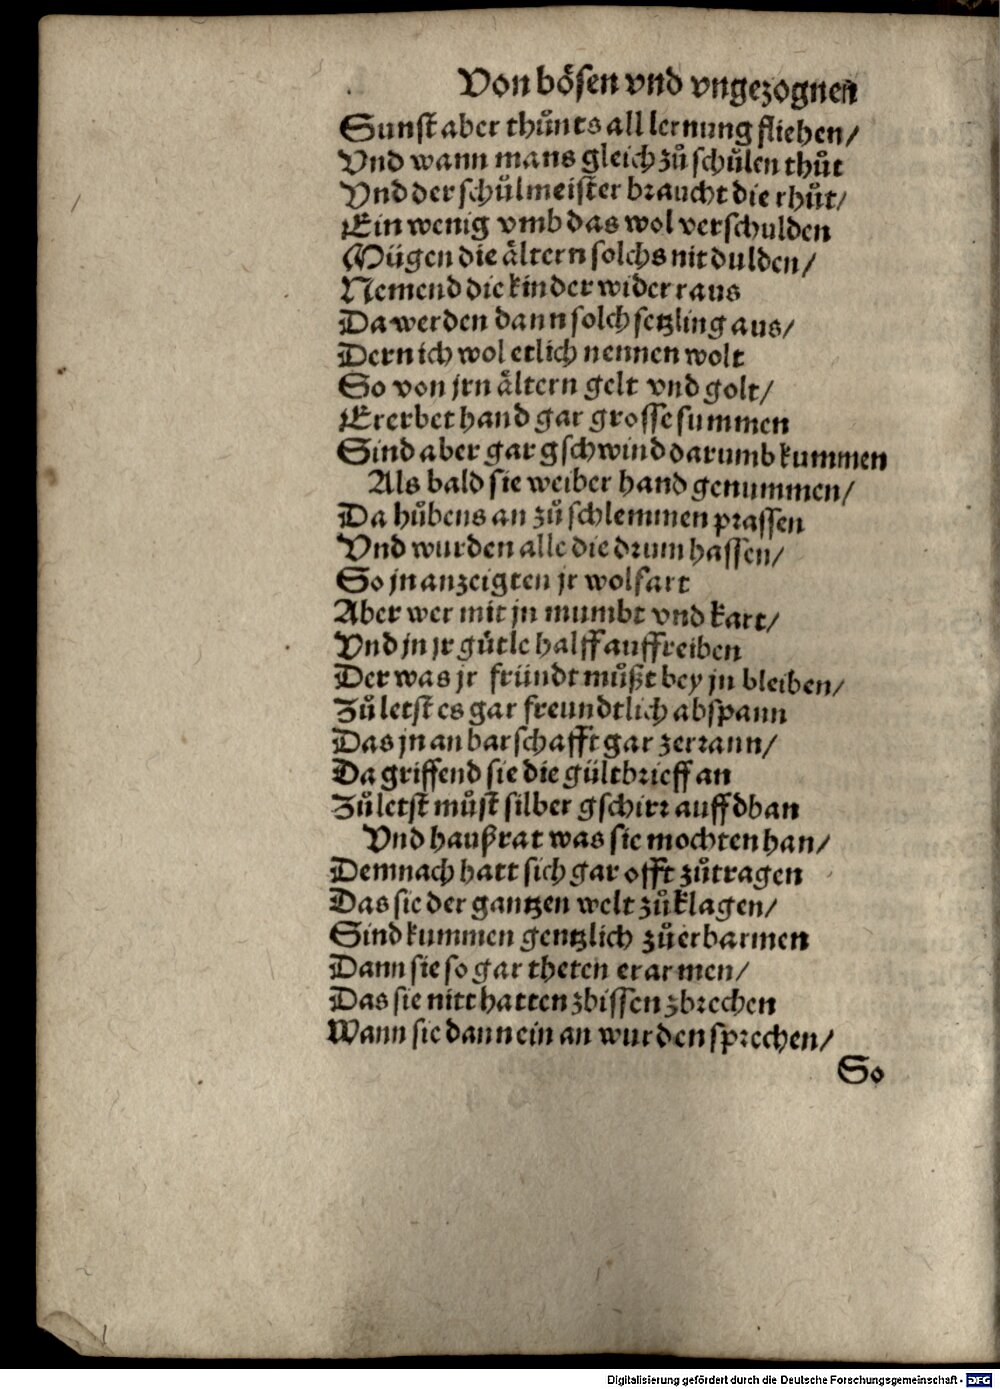 Von bösen vnd vngezognen
Sunst aber thůnts all lernung fliehen/
Vnd wann mans gleich zů schůlen thůt
Vnd der schůlmeister braucht die rhůt/
Ein wenig vmb das wol verschulden
Mügen die ältern solchs nit dulden/
Nemend die kinder wider raus
Da werden dann solch setzling aus/
Dern ich wol etlich nennen wolt
So von jrn ältern gelt vnd golt/
Ererbet hand gar grosse summen
Sind aber gar gschwind darumb kummen
Als bald sie weiber hand genummen/
Da hůbens an zů schlemmen prassen
Vnd wurden alle die drum hassen/
So jn anzeigten jr wolfart
Aber wer mit jn mumbt vnd kart/
Vnd jn jr gůtle halff auffreiben
Der was jr fründt můßt bey jn bleiben/
Zů letst es gar freundtlich abspann
Das jn an barschafft gar zerrann/
Da griffend sie die gültbrieff an
Zů letst můst silber gschirr auff dban
Vnd haußrat was sie mochten han/
Demnach hatt sich gar offt zůtragen
Das sie der gantzen welt zůklagen/
Sind kummen gentzlich zůerbarmen
Dann sie so gar theten erarmen/
Das sie nitt hatten zbissen zbrechen
Wann sie dann ein an wurden sprechen/
So
Digitalisierung gefördert durch die Deutsche Forschungsgemeinschaft - DFG